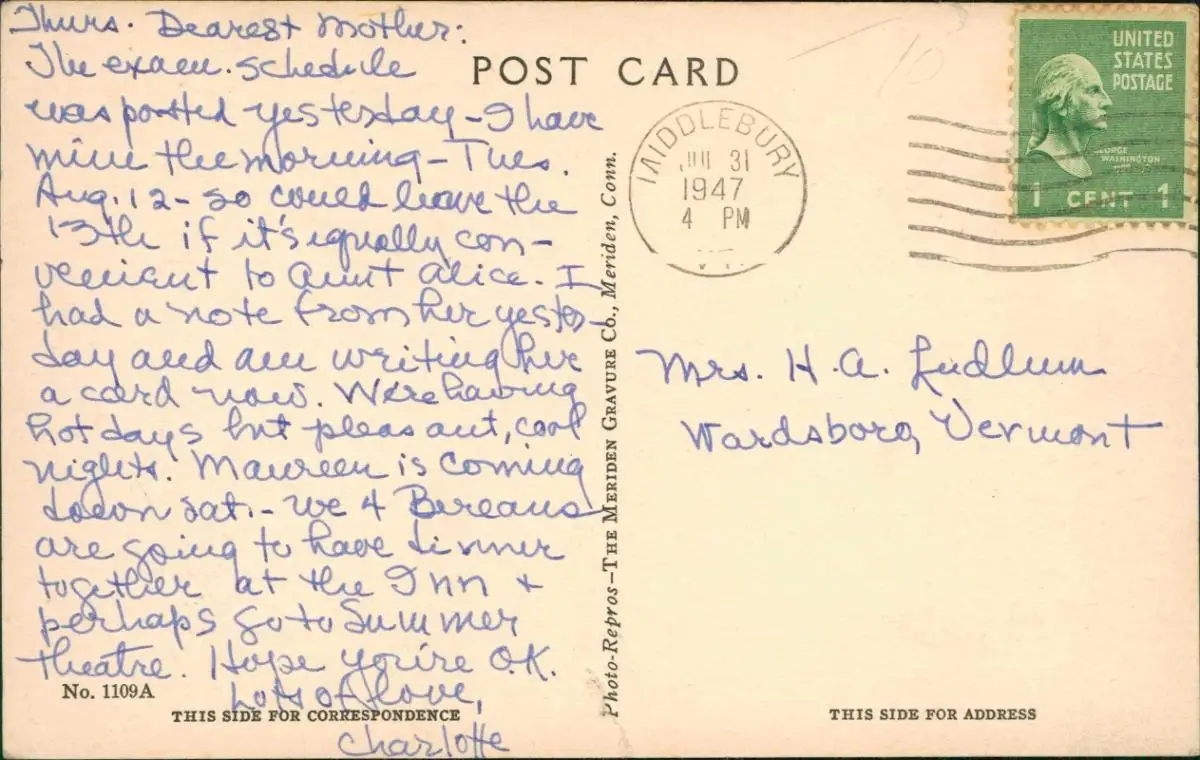 Thurs. Dearest Mother:
The exam. schedule
was posted yesterday - I have
mine the morning - Tues.
Aug. 12 - so could leave the
13th if it's equally con-
venient to Aunt Alice. I
had a note from her yester-
day and am writing her
a card now. We're having
hot days but pleasant, cool
nights. Maureen is coming
down Sat. - we 4 Bereans
are going to have dinner
together at the Inn +
perhaps go to Summer
theatre. Hope you're O.K.
Lots of love,
Charlotte
No. 1109A
THIS SIDE FOR CORRESPONDENCE
POST CARD
Photo-Repros-THE MERIDEN GRAVURE CO., Meriden, Conn.
MIDDLEBURY
JUL 31
1947
4 PM
VT.
UNITED
STATES
POSTAGE
GEORGE
WASHINGTON
1 CENT 1
Mrs. H. A. Ludlum
Wardsboro, Vermont
THIS SIDE FOR ADDRESS
10